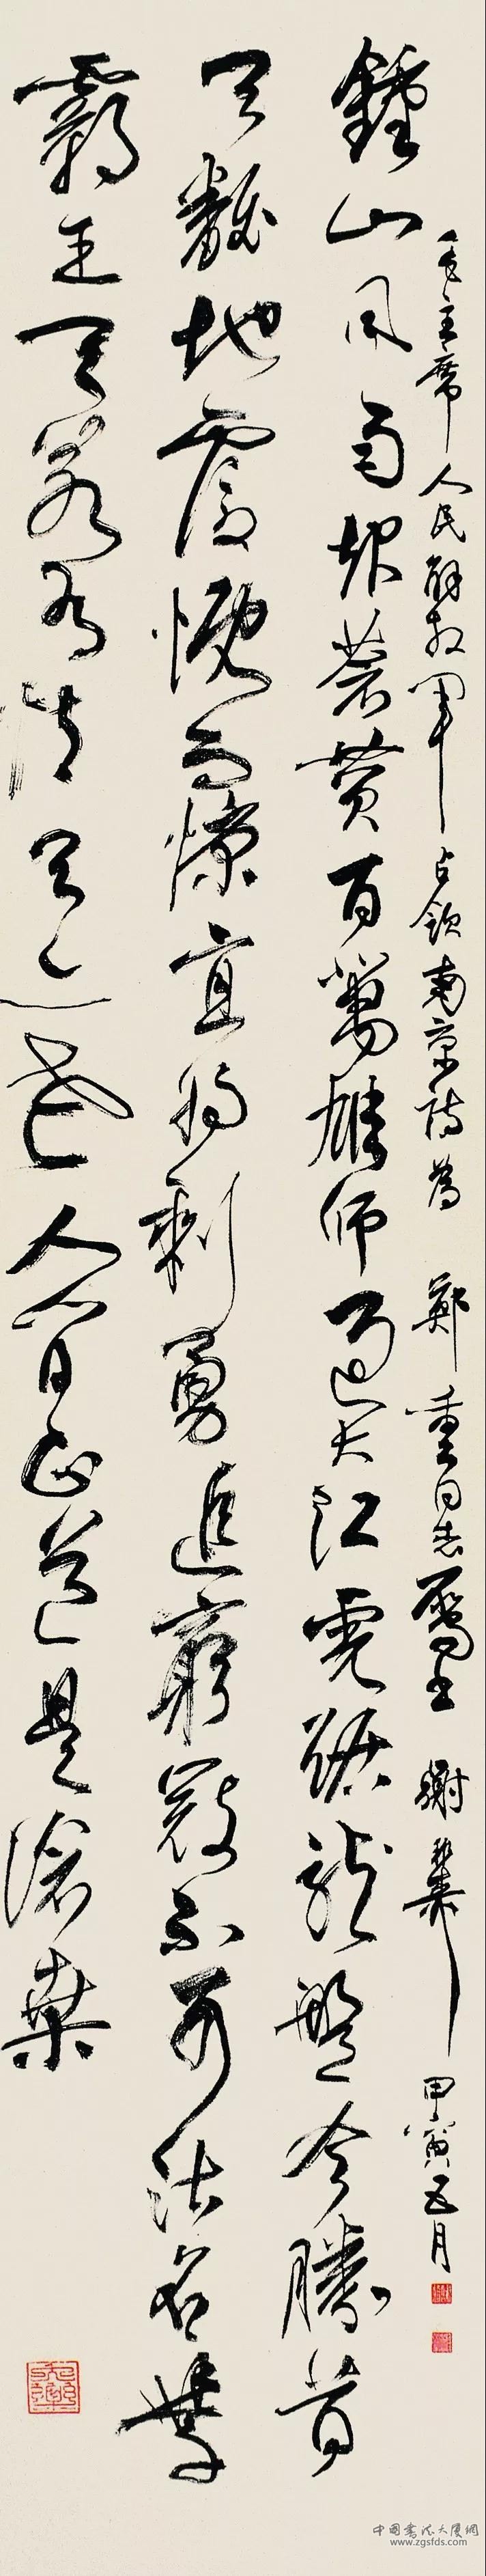 毛主席人民解放軍占領南京詩為 鄭重同志屬書 謝 甲寅五月
鍾山風雨起蒼黃百萬雄師過大江虎踞龍盤今勝昔
天翻地覆慨而慷宜將剩勇追窮寇不可沽名學
霸王天若有情天亦老人間正道是滄桑
中國書法大廈網
www.zgsfds.com